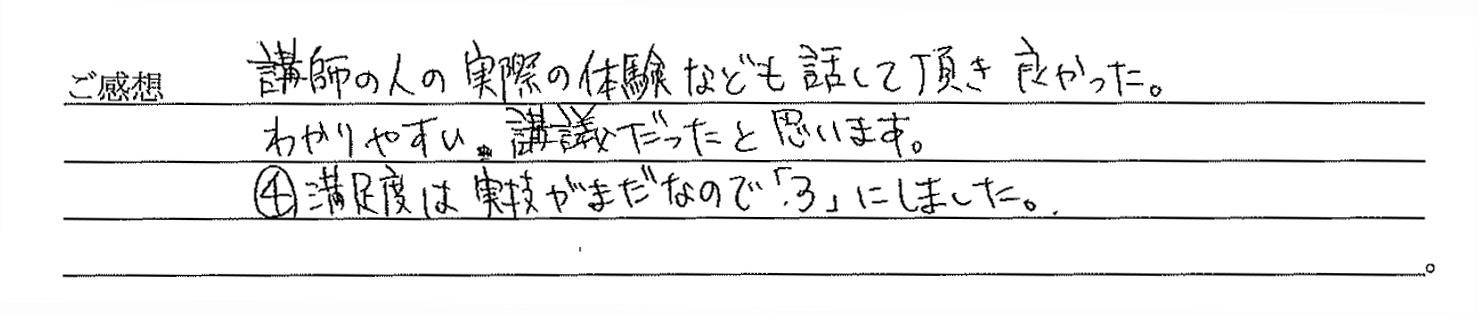 ご感想 講師の人の実際の体験なども話して頂き良かった。
わかりやすい講議だったと思います。
④満足度は実技がまだなので「3」にしました。
。